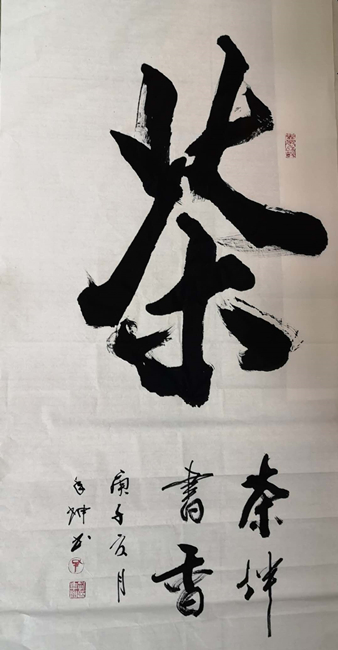 茶
茶伴
書香
庚子夏月
书